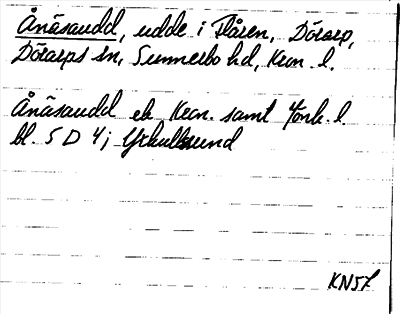 Ånäsaudd, udde i Flåren, Dörarp,
Dörarps sn, Sunnerbo hd, Kron. l.
Ånäsaudd ek Kron. samt Jönk. l.
bl. 5 D 4; 
KN57